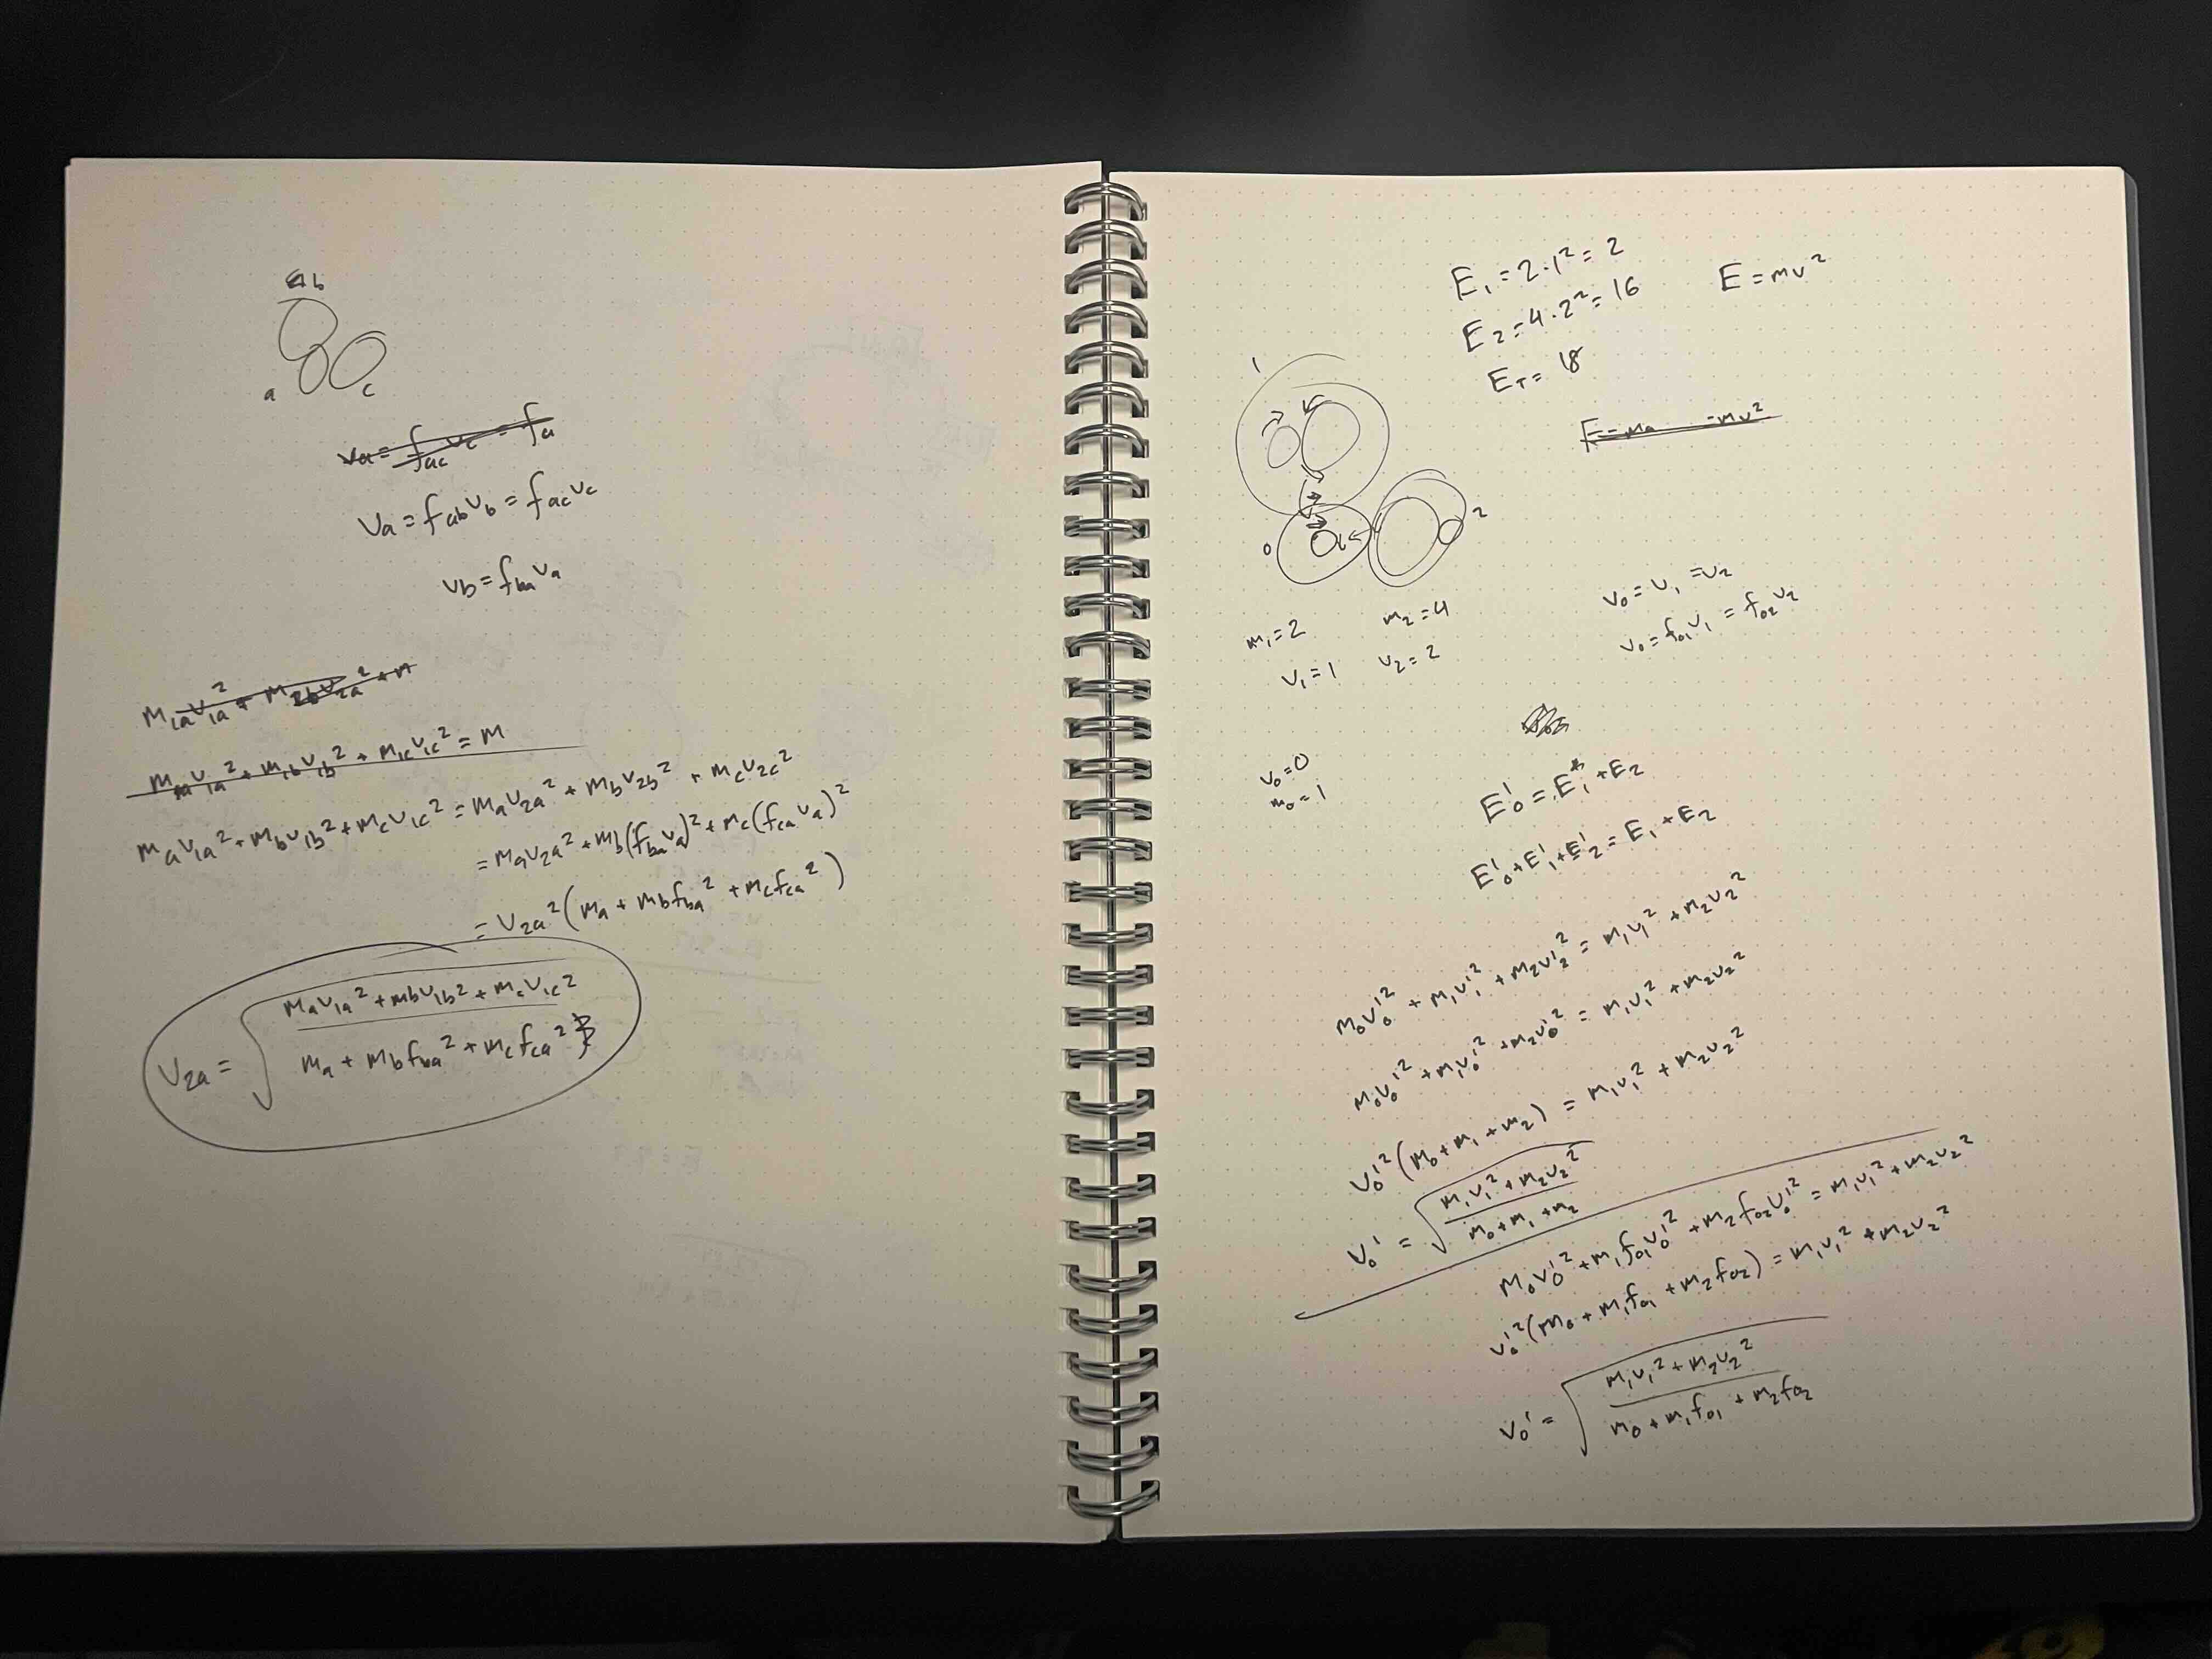 b
a
c
va = fac vc = fa
va = fab vb = fac vc
vb = fba va
m1a v1a² + m2b v2a² + m
m1a v1a² + m1b v1b² + m1c v1c² = m
ma v1a² + mb v1b² + mc v1c² = ma v2a² + mb v2b² + mc v2c²
= ma v2a² + mb (fba va)² + mc (fca va)²
= v2a² (ma + mb fba² + mc fca²)
v2a = √((ma v1a² + mb v1b² + mc v1c²) / (ma + mb fba² + mc fca²))
E1 = 2 · 1² = 2
E = mv²
E2 = 4 · 2² = 16
ET = 18
F = ma = mv²
1
2
0
v0 = v1 = v2
v0 = f01 v1 = f02 v2
m1 = 2 m2 = 4
v1 = 1 v2 = 2
v0 = 0
m0 = 1
E0' = E1 + E2
E0' + E1' + E2' = E1 + E2
m0 v0'² + m1 v1'² + m2 v2'² = m1 v1² + m2 v2²
m0 v0'² + m1 v0'² + m2 v0'² = m1 v1² + m2 v2²
v0'² (m0 + m1 + m2) = m1 v1² + m2 v2²
v0' = √((m1 v1² + m2 v2²) / (m0 + m1 + m2))
m0 v0'² + m1 f01 v0'² + m2 f02 v0'² = m1 v1² + m2 v2²
v0'² (m0 + m1 f01 + m2 f02) = m1 v1² + m2 v2²
v0' = √((m1 v1² + m2 v2²) / (m0 + m1 f01 + m2 f02))